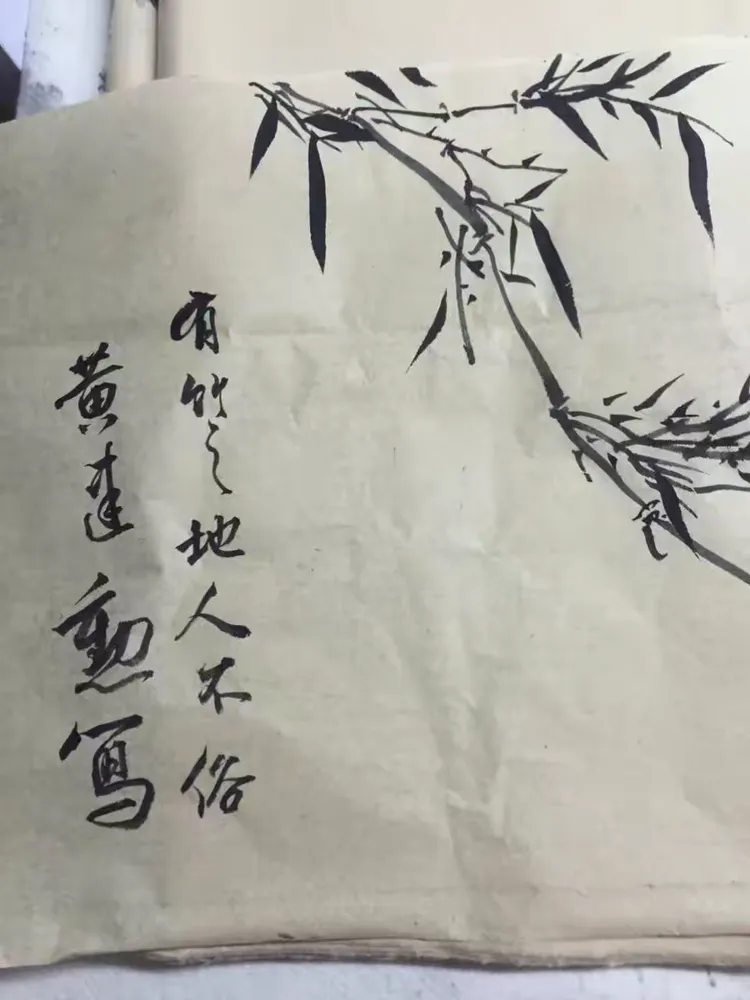 有竹之地人不俗
黄建勳写